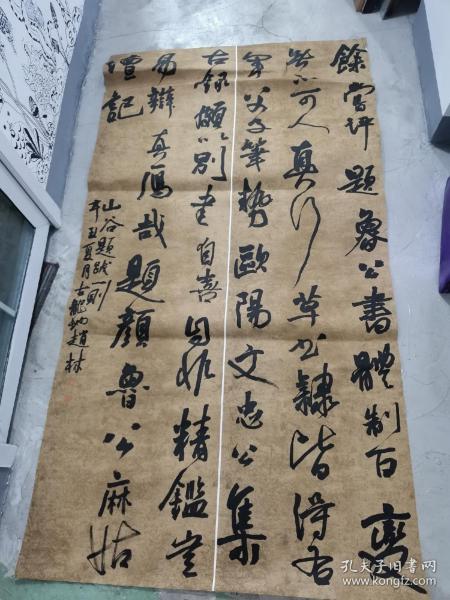 餘嘗評題魯公書體制百變
無不可人真行草書隸皆得右
軍父子筆勢歐陽文忠公集
古錄頗別書自喜自非精鑑豈
易辯真贗哉題顏魯公麻姑
壇記
山谷題跋一則
辛丑夏月古龍坳趙林
孔夫子旧书网
www.kongfz.com